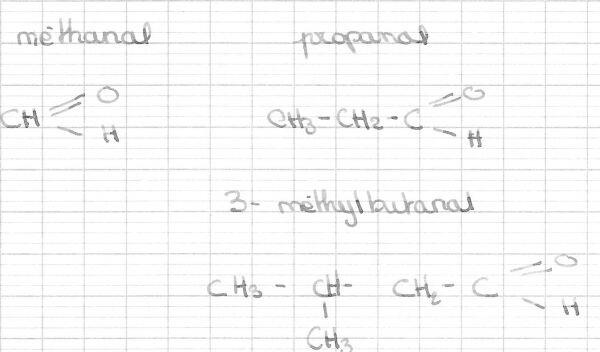 méthanal propanal
O O
CH CH3-CH2-C
H H
3- méthylbutanal
O
CH3 - CH- CH2- C
H
CH3